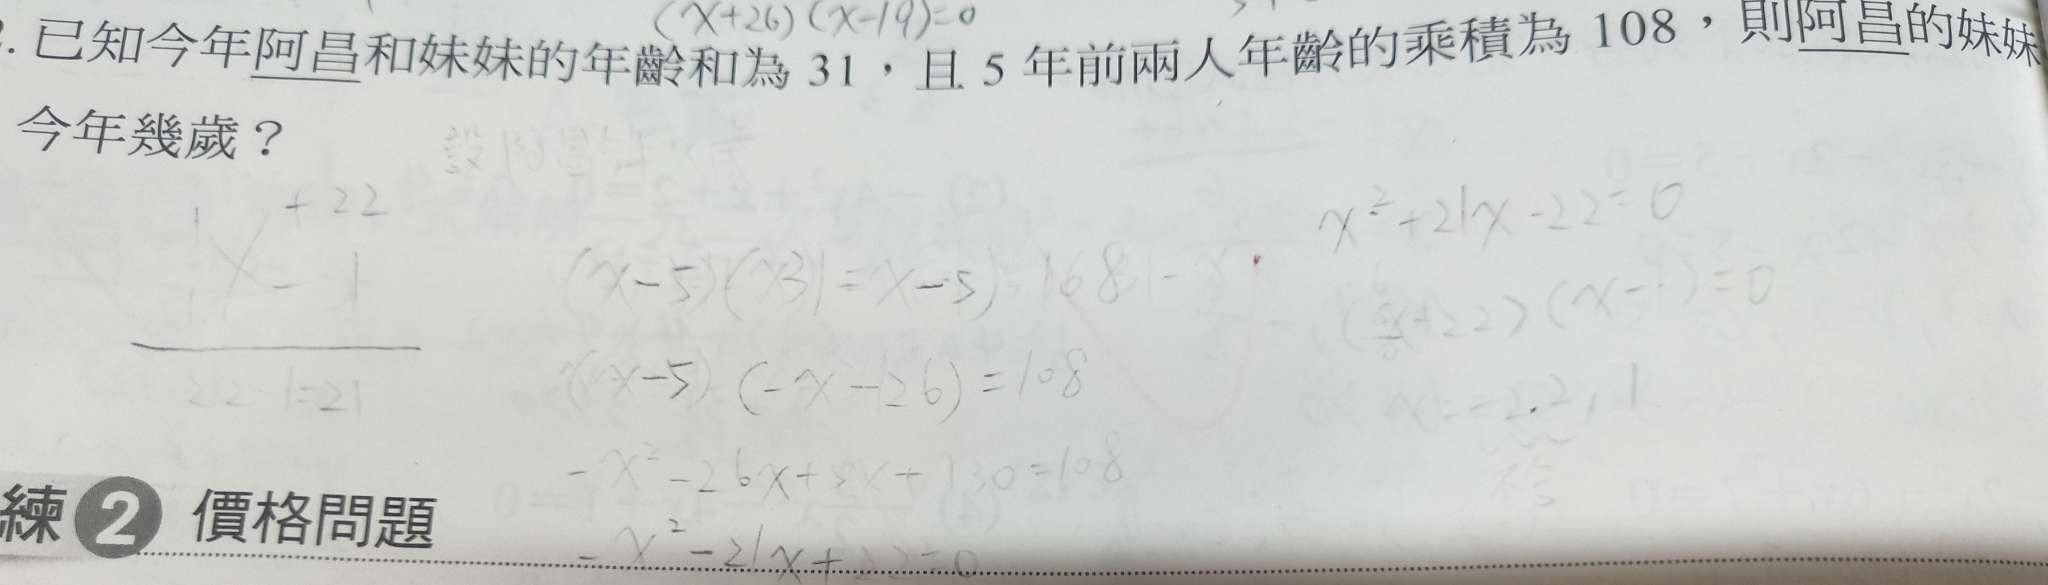 (x+26)(x-19)=0
. 已知今年阿昌和妹妹的年齡和為 31，且 5 年前兩人年齡的乘積為 108，則阿昌的妹妹
今年幾歲？
1 +22
1 - 1
22-1=21
(x-5)(31-x-5)=108
(x-5)(-x-26)=108
-x²-26x+5x+130=108
-x²-21x+22=0
x²+21x-22=0
(x+22)(x-1)=0
x=-22,1
練 2 價格問題